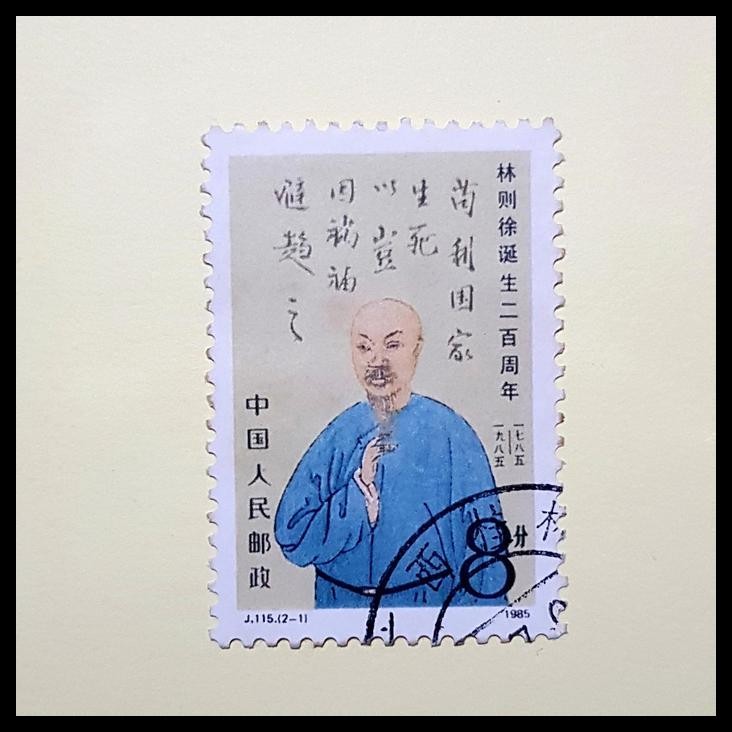 林则徐诞生二百周年
一七八五
一九八五
苟利国家
生死
以岂
因祸福
避趋之
中国人民邮政
8分
J.115.(2-1)
1985